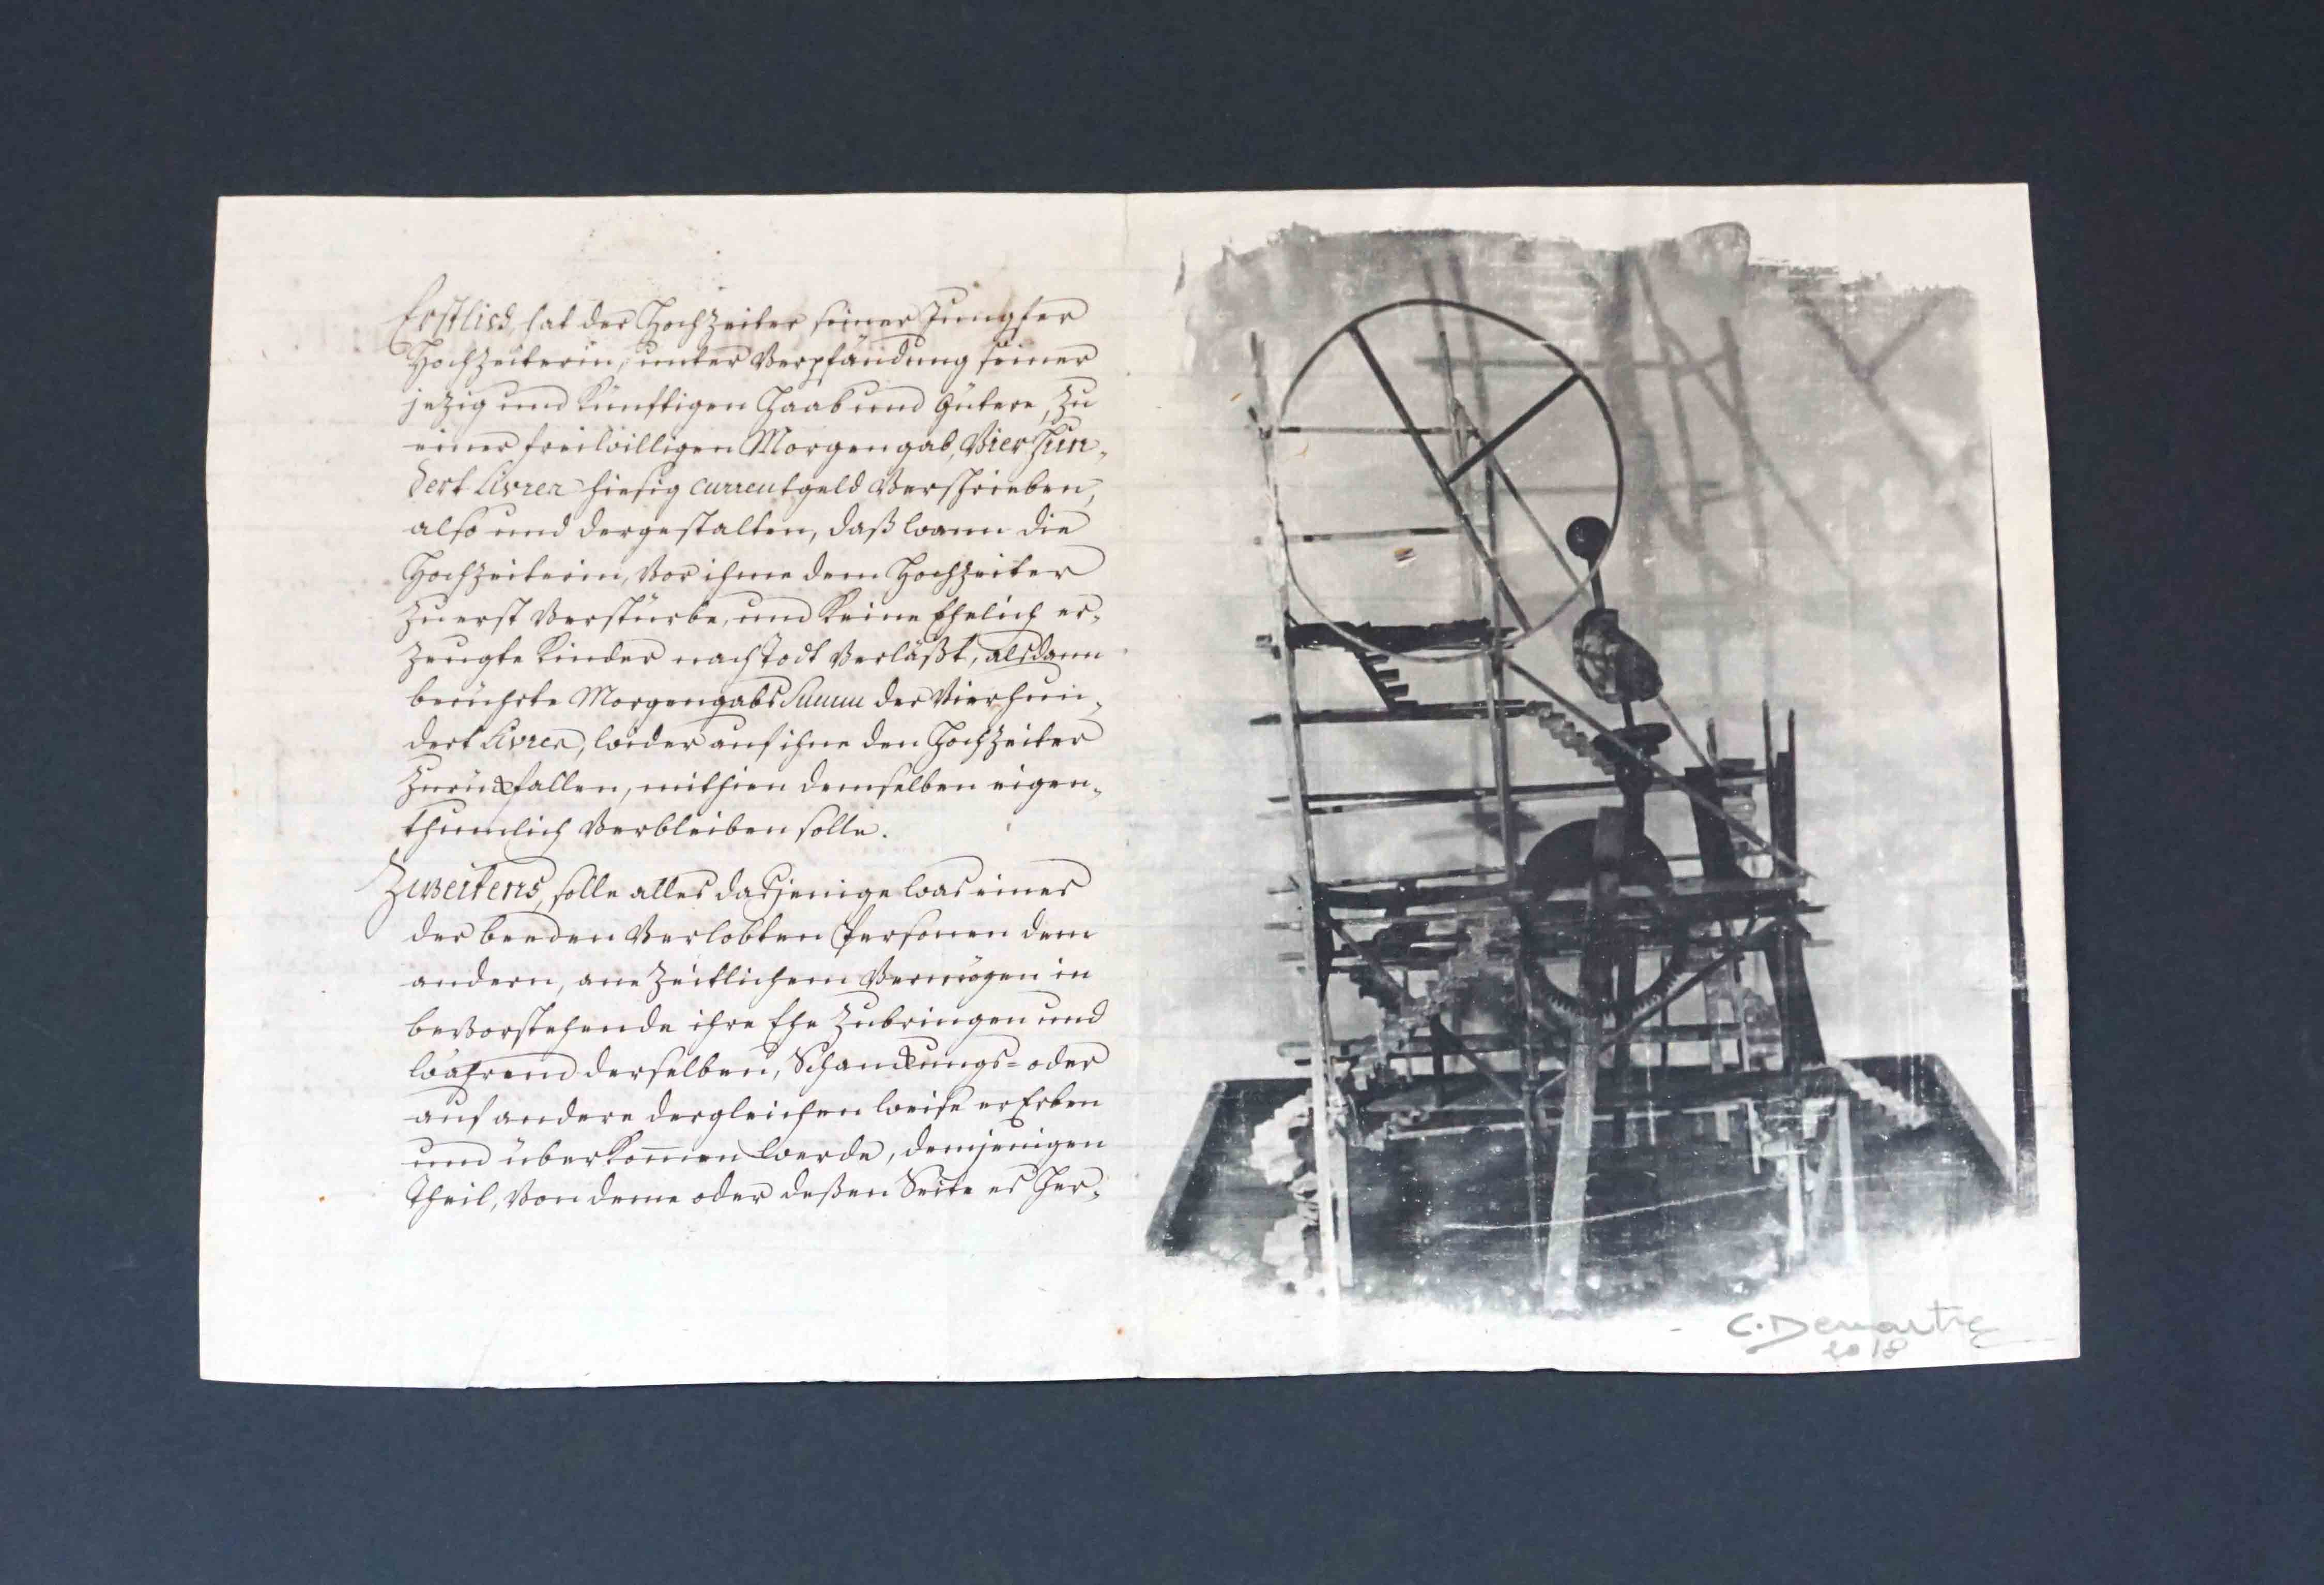 Erstlich, hat der Hochzeiter seiner Jungfer
Hochzeiterin, unter Verpfändung seiner
jezig und Künftigen Haab und Gütere, zu
einer freiwilligen Morgengab, Vier Hun-
dert Livres hiesig currentgeld Verschrieben,
also und dergestalten, daß wann die
Hochzeiterin, Vor ihme dem Hochzeiter
Zuerst Verstürbe, und Keine Ehelich er-
zeugte Kinder nach Todt Verläßt, alsdann
berührte Morgengabs Summ der Vierhun-
dert Livres, wider auf ihne den Hochzeiter
Zurükfallen, mithien demselben eigen-
thumlich Verbleiben solle.
Zweitens, solle alles dasjenige was eines
der beeden Verlobten Personen dem
andern, ane Zeitlichem Vermögen in
beVorstehende ihre Ehe Zubringen und
währennd derselben, Schankungs= oder
auf andere dergleichen weise erErben
und überKommen werde, demjenigen
Theil, Von deme oder deßen Seite es Her-
C. Demartre
2018